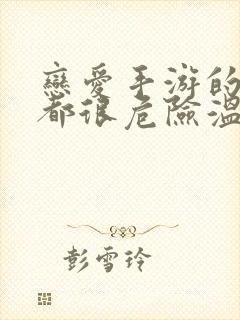 戀愛手游的
都很危險溫
彭雪玲